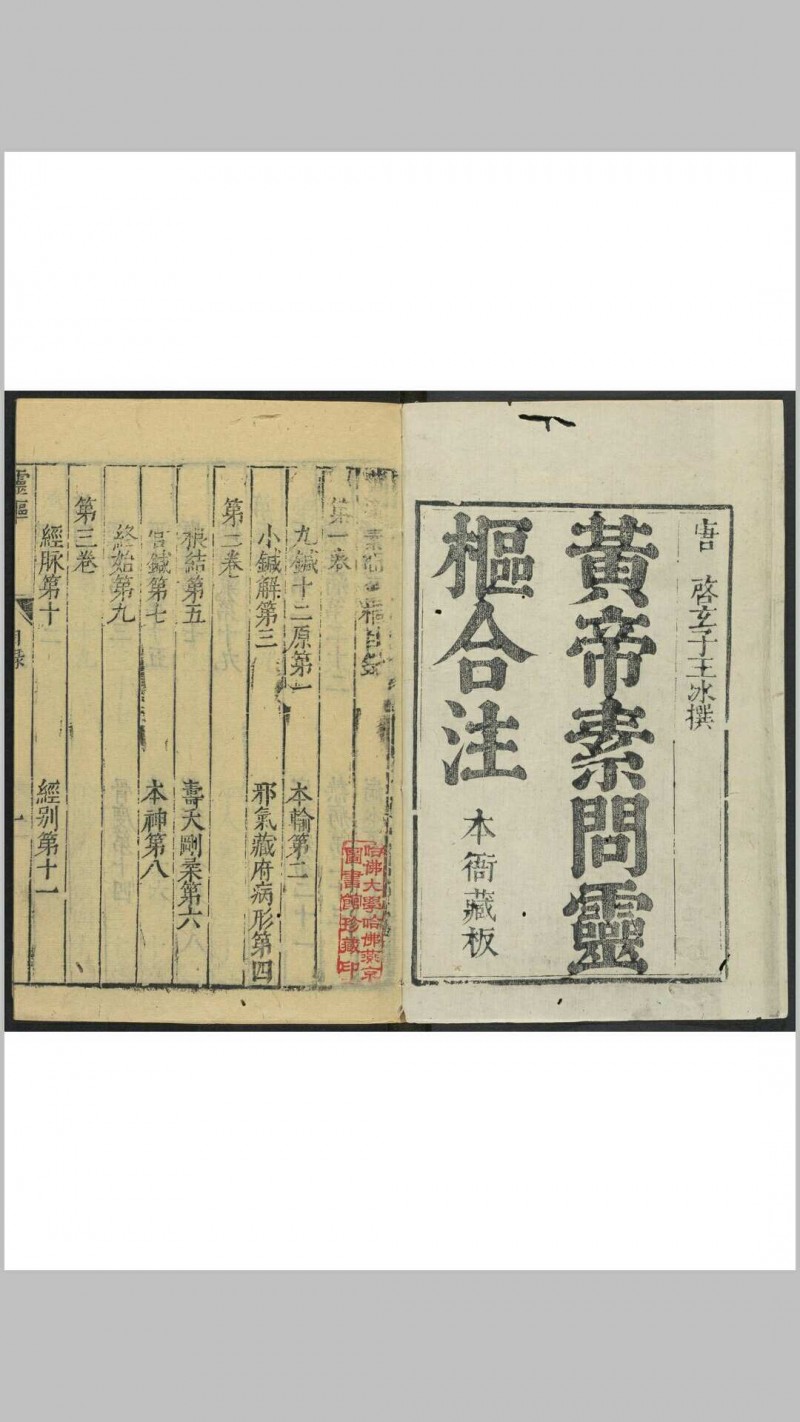 唐 啓玄子王冰撰
黃帝素問靈
樞合注
本衙藏板
哈佛大學哈佛燕京
圖書館珍藏印
第一卷
九鍼十二原第一 本輸第二
小鍼解第三 邪氣藏府病形第四
第二卷
根結第五 壽夭剛柔第六
官鍼第七 本神第八
終始第九
第三卷
經脉第十 經別第十一
靈樞 目錄 一